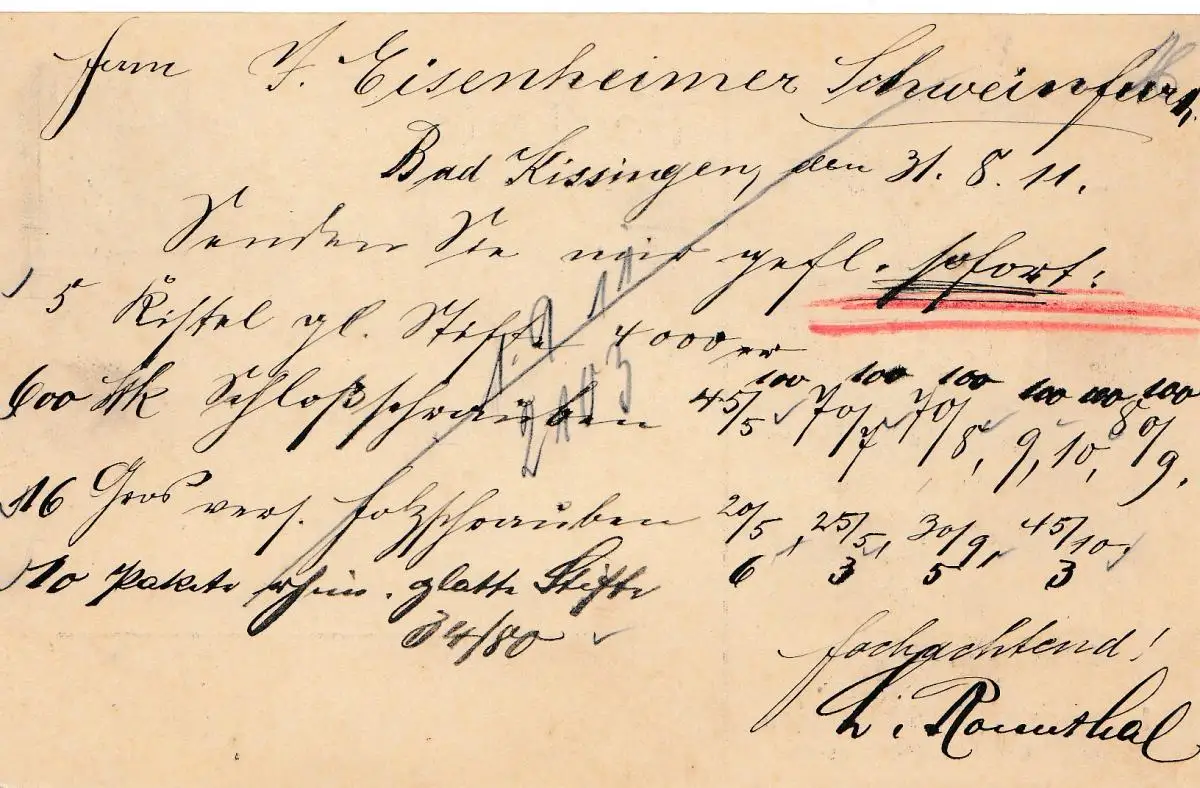 Herrn J. Eisenheimer Schweinfurt.
Bad Kissingen, den 31. 8. 11.
Senden Sie mir gefl. sofort:
5 Kistel gl. Stifte 4000 er
100 100 100 100 100 100
600 Stk Schloßschrauben 45/5 70/7 70/8, 9, 10, 80/9.
16 Gros vers. Holzschrauben 20/5, 25/5, 30/9, 45/10,
6 3 5 3
10 Pakete rhein. glatte Stifte
34/80
1. 9. 11
2103
Hochachtend!
Rosenthal